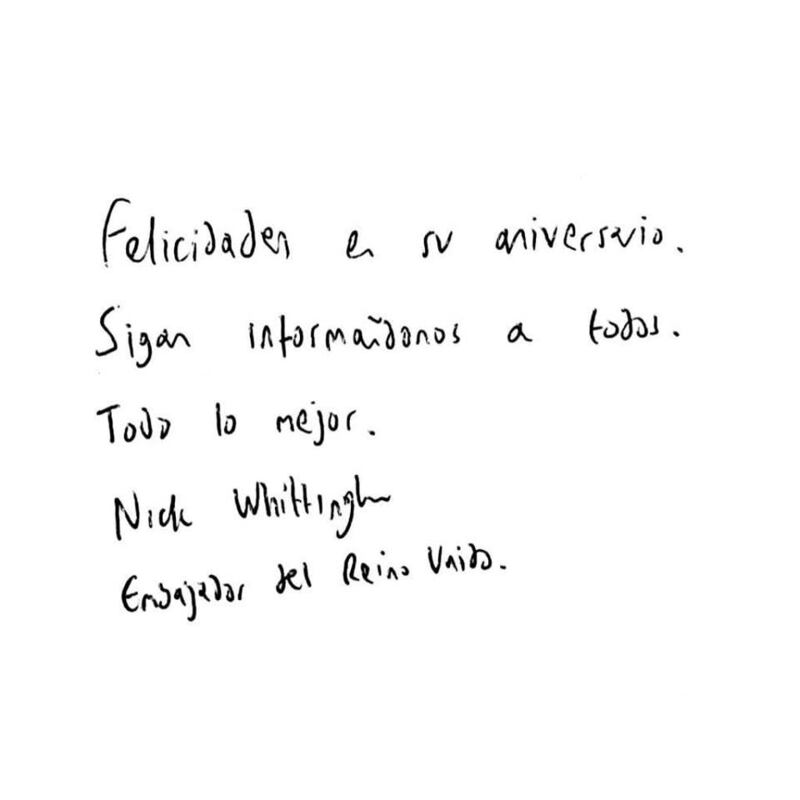 Felicidades en su aniversario.
Sigan informañdonos a todos.
Todo lo mejor.
Nick Whittingham
Embajador del Reino Unido.